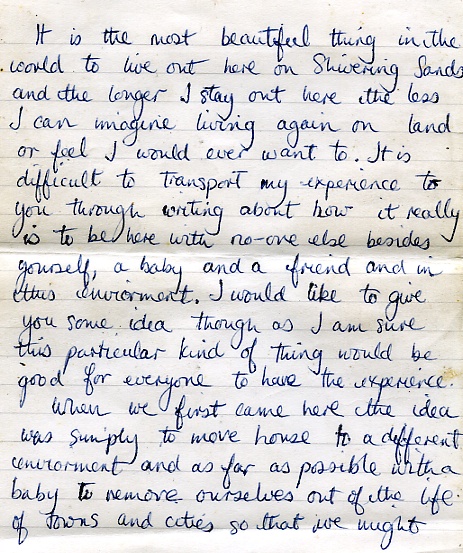 It is the most beautiful thing in the
world to live out here on Shivering Sands
and the longer I stay out here the less
I can imagine living again on land
or feel I would ever want to. It is
difficult to transport my experience to
you through writing about how it really
is to be here with no-one else besides
yourself, a baby and a friend and in
this enviorment. I would like to give
you some idea though as I am sure
this particular kind of thing would be
good for everyone to have the experience.
When we first came here the idea
was simply to move house to a different
enviorment and as far as possible with a
baby to remove ourselves out of the life
of towns and cities so that we might